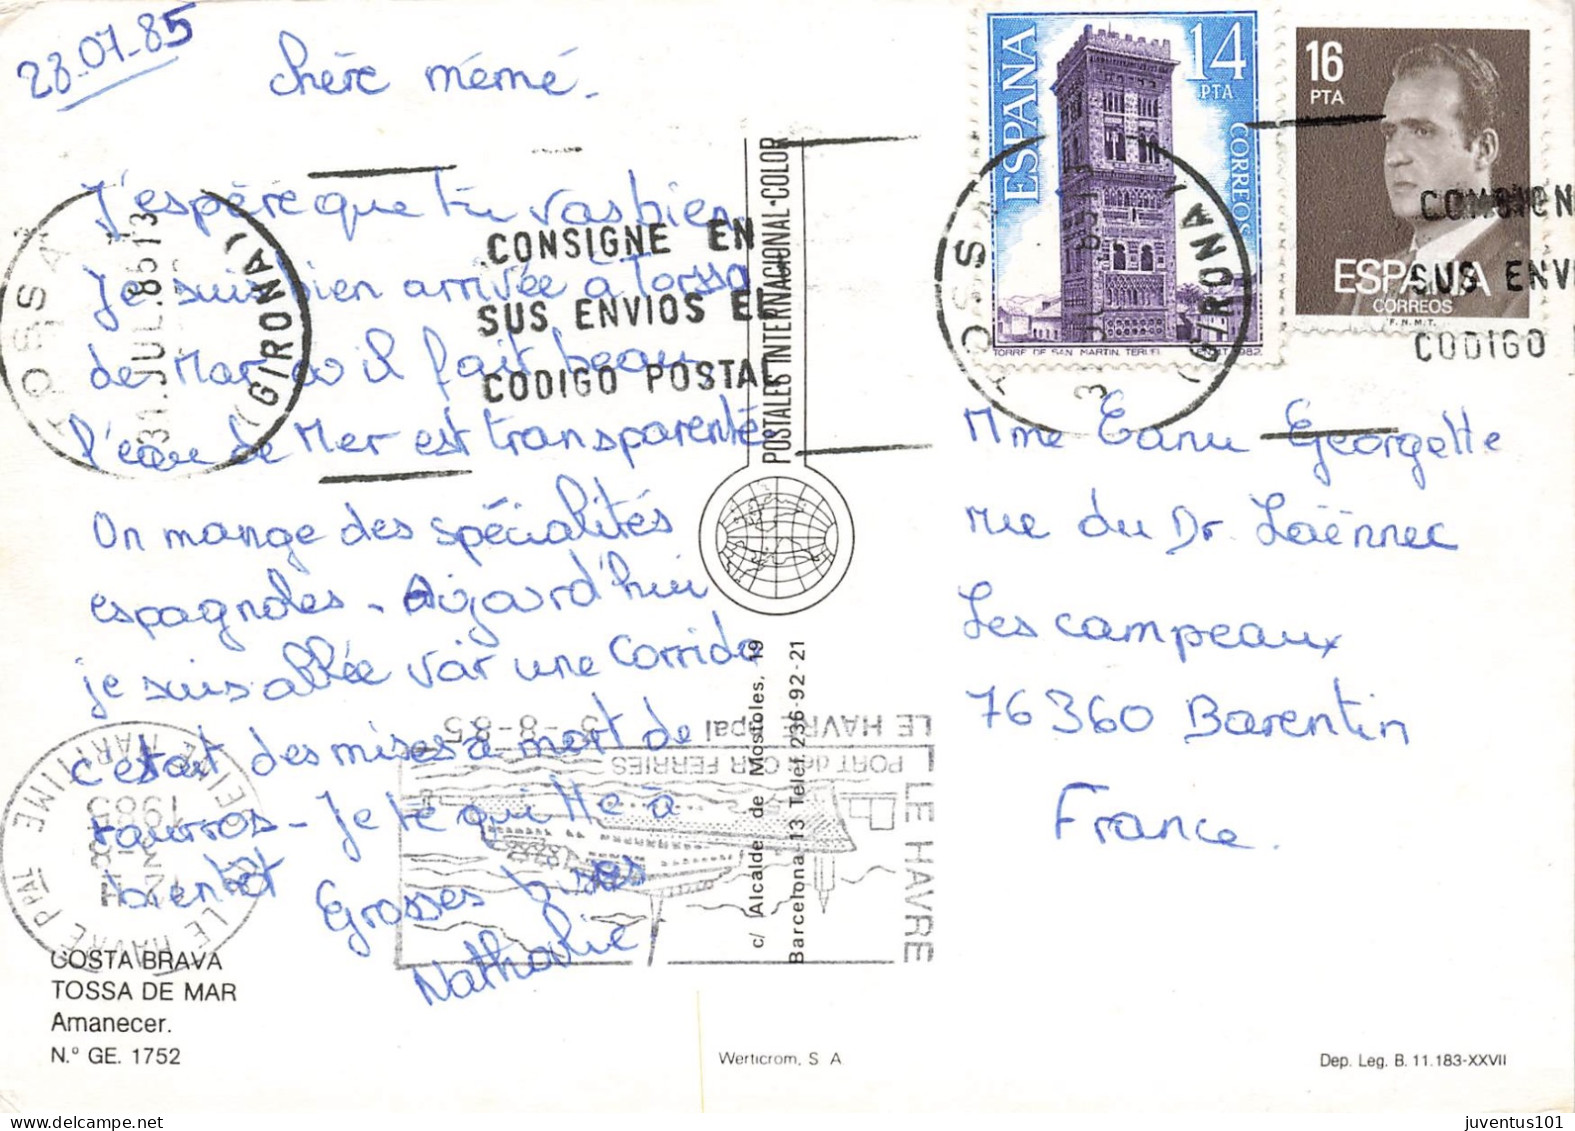 28-07-85
chère mémé.
J'espère que tu vas bien
Je suis bien arrivée à Torssa
de Mar où il fait beau
l'eau de Mer est transparentée
On mange des spécialités
espagnoles - Aujourd'hui
je suis allée voir une Corrida
c'etait des mises à mort de
taurros - Je te quitte à
bientot Grosses bises
Nathalie
COSTA BRAVA
TOSSA DE MAR
Amanecer.
N.º GE. 1752
TOSSA
31.JUL.8513
(GIRONA)
CONSIGNE EN
SUS ENVIOS EL
CODIGO POSTAL
POSTALES INTERNACIONAL-COLOR
c/ Alcalde de Mostoles, 19
Barcelona 13 Telef. 236-92-21
LE HAVRE PPAL
SEINE MARITIME
1985
LE HAVRE ppal
5-8-85
PORT des CAR FERRIES
LE HAVRE
Werticrom, S A
ESPAÑA
14
PTA
CORREOS
TORRE DE SAN MARTIN, TERUEL
1982
16
PTA
ESPAÑA
CORREOS
F.N.M.T.
TOSSA
(GIRONA)
CONSIGN
SUS ENVI
CODIGO
Mme Canu Georgette
rue du Dr Laënnec
Les campeaux
76360 Barentin
France.
Dep. Leg. B. 11.183-XXVII
juventus101